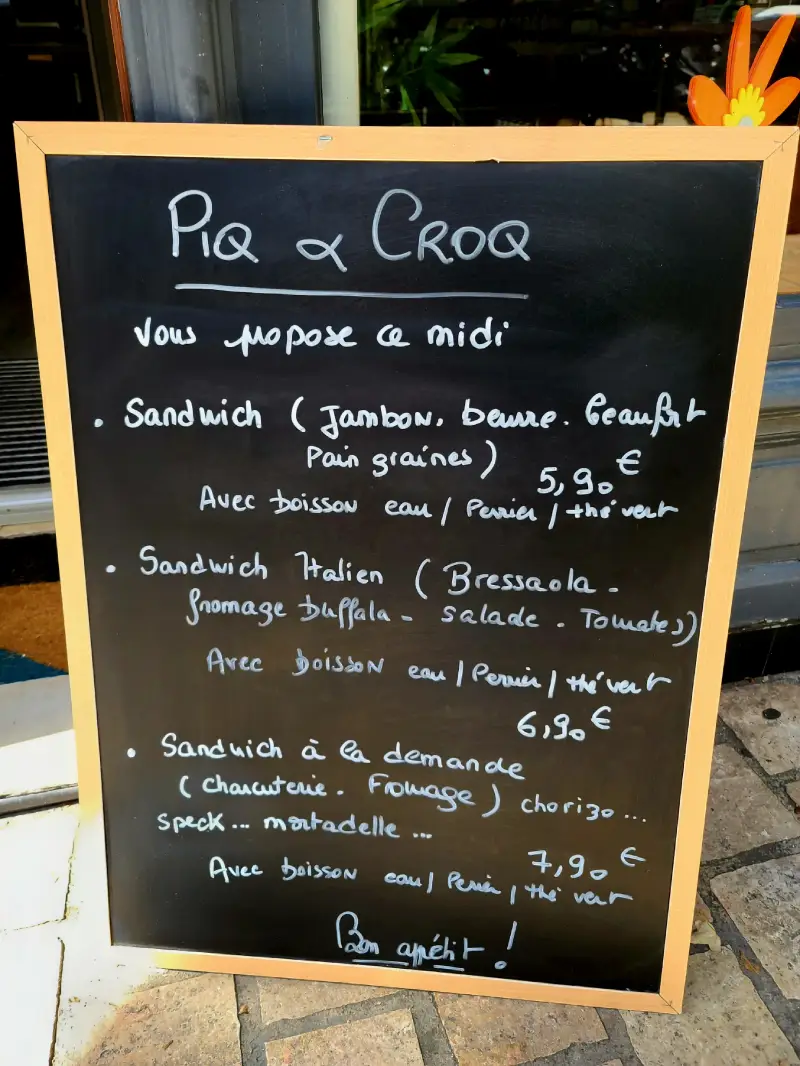 PIQ & CROQ
Vous propose ce midi
• Sandwich ( Jambon. beurre. beaufort
Pain graines )
5,90 €
Avec boisson eau / Perrier / thé vert
• Sandwich Italien ( Bressaola -
fromage buffala - salade . Tomates)
Avec boisson eau / Perrier / thé vert
6,90 €
• Sandwich à la demande
( charcuterie . Fromage ) chorizo ...
speck ... mortadelle ...
7,90 €
Avec boisson eau / Perrier / thé vert
Bon appétit !